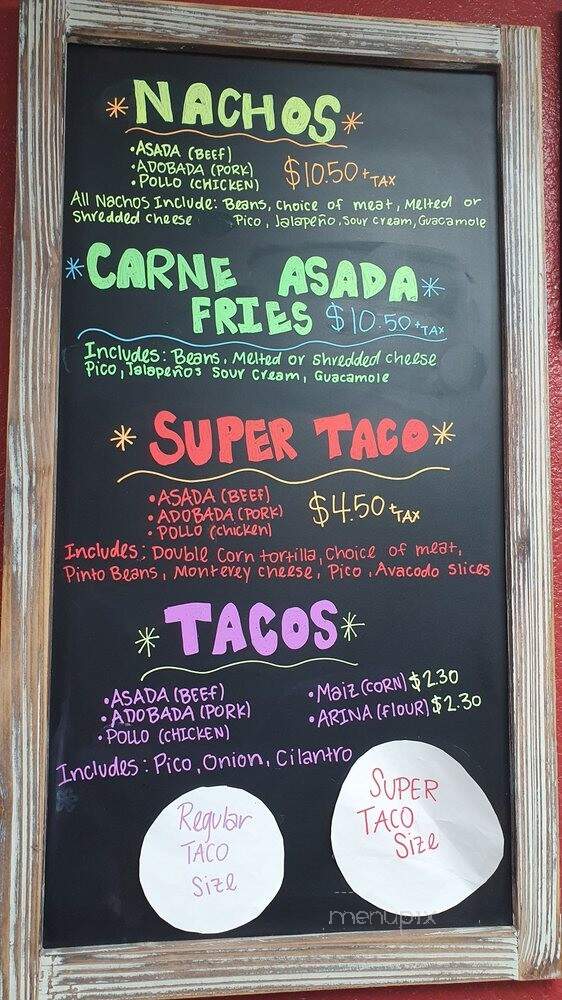 *NACHOS*
•ASADA (BEEF)
•ADOBADA (PORK)
•POLLO (CHICKEN)
$10.50+TAX
All Nachos Include: Beans, choice of meat, Melted or
shredded cheese Pico, Jalapeño, sour cream, Guacamole
*CARNE ASADA*
FRIES $10.50+TAX
Includes: Beans, Melted or shredded cheese
Pico, Jalapeños sour cream, Guacamole
*SUPER TACO*
•ASADA (BEEF)
•ADOBADA (PORK)
•POLLO (chicken)
$4.50+TAX
Includes: Double corn tortilla, choice of meat,
Pinto Beans, Monterey cheese, Pico, Avacodo slices
*TACOS*
•ASADA (BEEF)
•ADOBADA (PORK)
•POLLO (CHICKEN)
•Maiz (CORN) $2.30
•ARINA (flour) $2.30
Includes: Pico, Onion, Cilantro
Regular
TACO
Size
SUPER
TACO
Size
menupix